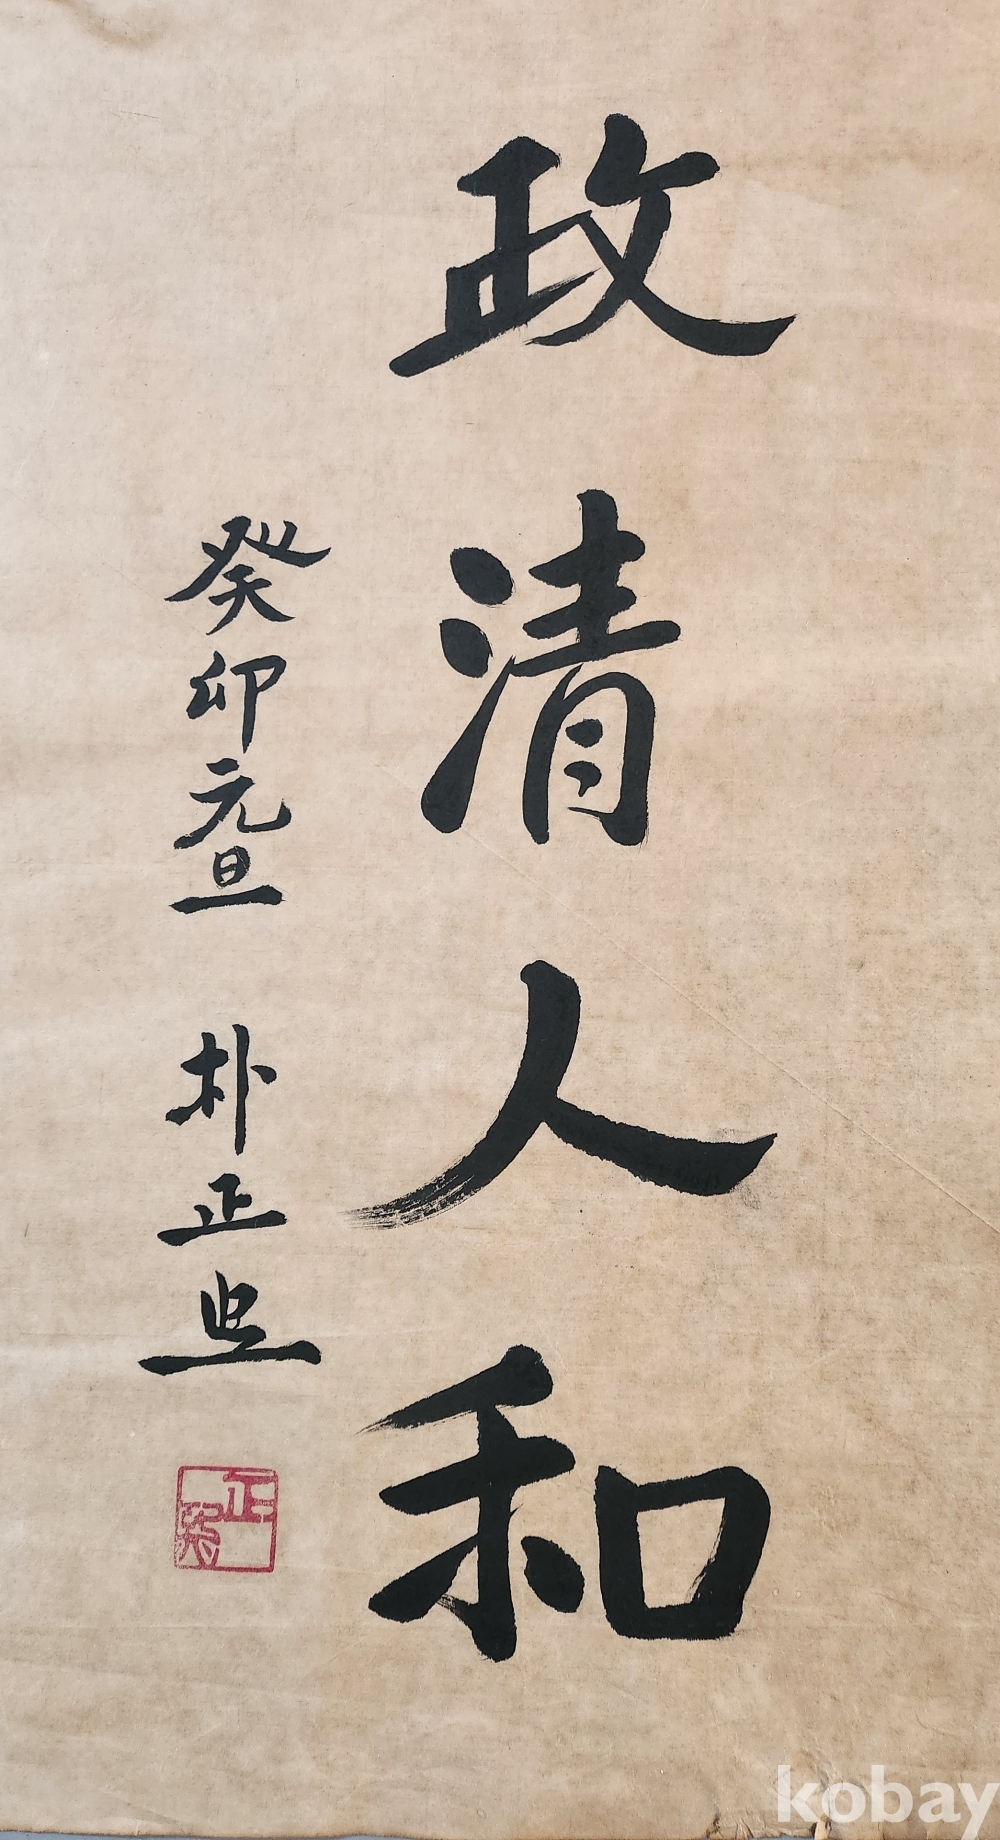 政清人和
癸卯元旦 朴正
正
kobay